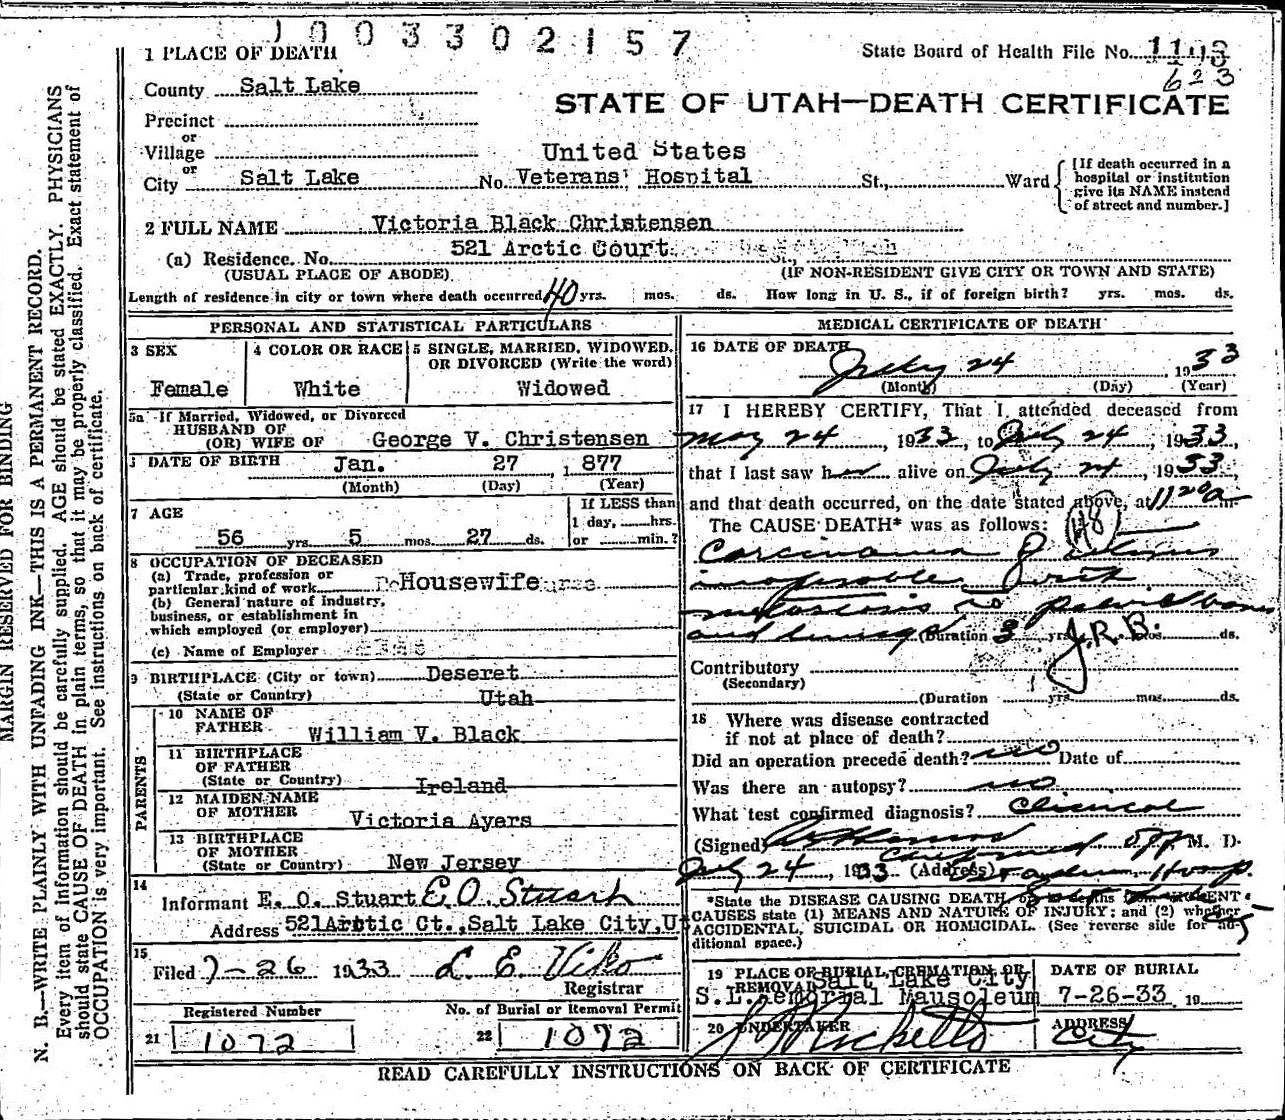 1003302157
1 PLACE OF DEATH
State Board of Health File No. 1198
623
County Salt Lake
STATE OF UTAH—DEATH CERTIFICATE
Precinct
or
Village
United States
or
City Salt Lake No. Veterans' Hospital St., Ward
[If death occurred in a hospital or institution give its NAME instead of street and number.]
2 FULL NAME Victoria Black Christensen
(a) Residence. No. 521 Arctic Court St.,
(USUAL PLACE OF ABODE) (IF NON-RESIDENT GIVE CITY OR TOWN AND STATE)
Length of residence in city or town where death occurred 40 yrs. mos. ds. How long in U. S., if of foreign birth? yrs. mos. ds.
PERSONAL AND STATISTICAL PARTICULARS
3 SEX
Female
4 COLOR OR RACE
White
5 SINGLE, MARRIED, WIDOWED, OR DIVORCED (Write the word)
Widowed
5a If Married, Widowed, or Divorced
HUSBAND OF
(OR) WIFE OF George V. Christensen
DATE OF BIRTH Jan. 27 1877
(Month) (Day) (Year)
7 AGE
56 yrs. 5 mos. 27 ds.
If LESS than
1 day, hrs.
or min.?
8 OCCUPATION OF DECEASED
(a) Trade, profession or
particular kind of work Housewife
(b) General nature of industry,
business, or establishment in
which employed (or employer)
(c) Name of Employer
9 BIRTHPLACE (City or town) Deseret
(State or Country) Utah
PARENTS
10 NAME OF
FATHER William V. Black
11 BIRTHPLACE
OF FATHER
(State or Country) Ireland
12 MAIDEN NAME
OF MOTHER Victoria Ayers
13 BIRTHPLACE
OF MOTHER
(State or Country) New Jersey
14
Informant E. O. Stuart E. O. Stuart
Address 521 Arctic Ct., Salt Lake City, U
15
Filed 7-26 1933 L. E. Viko
Registrar
Registered Number
21 1072
No. of Burial or Removal Permit
22 1072
MEDICAL CERTIFICATE OF DEATH
16 DATE OF DEATH
July 24 1933
(Month) (Day) (Year)
17 I HEREBY CERTIFY, That I attended deceased from
May 24, 1933, to July 24, 1933,
that I last saw her alive on July 24, 1933,
and that death occurred, on the date stated above, at 11 20 a m.
The CAUSE DEATH* was as follows: 48
Carcinoma of uterus
inoperable with
metastasis to pelvic bones
and (Duration 3 yrs. mos. ds.
J.R.B.
Contributory
(Secondary)
(Duration yrs. mos. ds.
18 Where was disease contracted
if not at place of death?
Did an operation precede death? no Date of
Was there an autopsy? no
What test confirmed diagnosis? Clinical
(Signed) M. D.
July 24, 1933 (Address) Hosp.
*State the DISEASE CAUSING DEATH
CAUSES state (1) MEANS AND NATURE OF INJURY; and (2) whether
ACCIDENTAL, SUICIDAL OR HOMICIDAL. (See reverse side for ad-
ditional space.)
19 PLACE OF BURIAL, CREMATION OR
REMOVAL Salt Lake City
S.L. Memorial Mausoleum
DATE OF BURIAL
7-26-33 19
20 UNDERTAKER
ADDRESS
City
READ CAREFULLY INSTRUCTIONS ON BACK OF CERTIFICATE
MARGIN RESERVED FOR BINDING
N. B.—WRITE PLAINLY WITH UNFADING INK—THIS IS A PERMANENT RECORD.
Every item of information should be carefully supplied. AGE should be stated EXACTLY. PHYSICIANS
should state CAUSE OF DEATH in plain terms, so that it may be properly classified. Exact statement of
OCCUPATION is very important. See instructions on back of certificate.